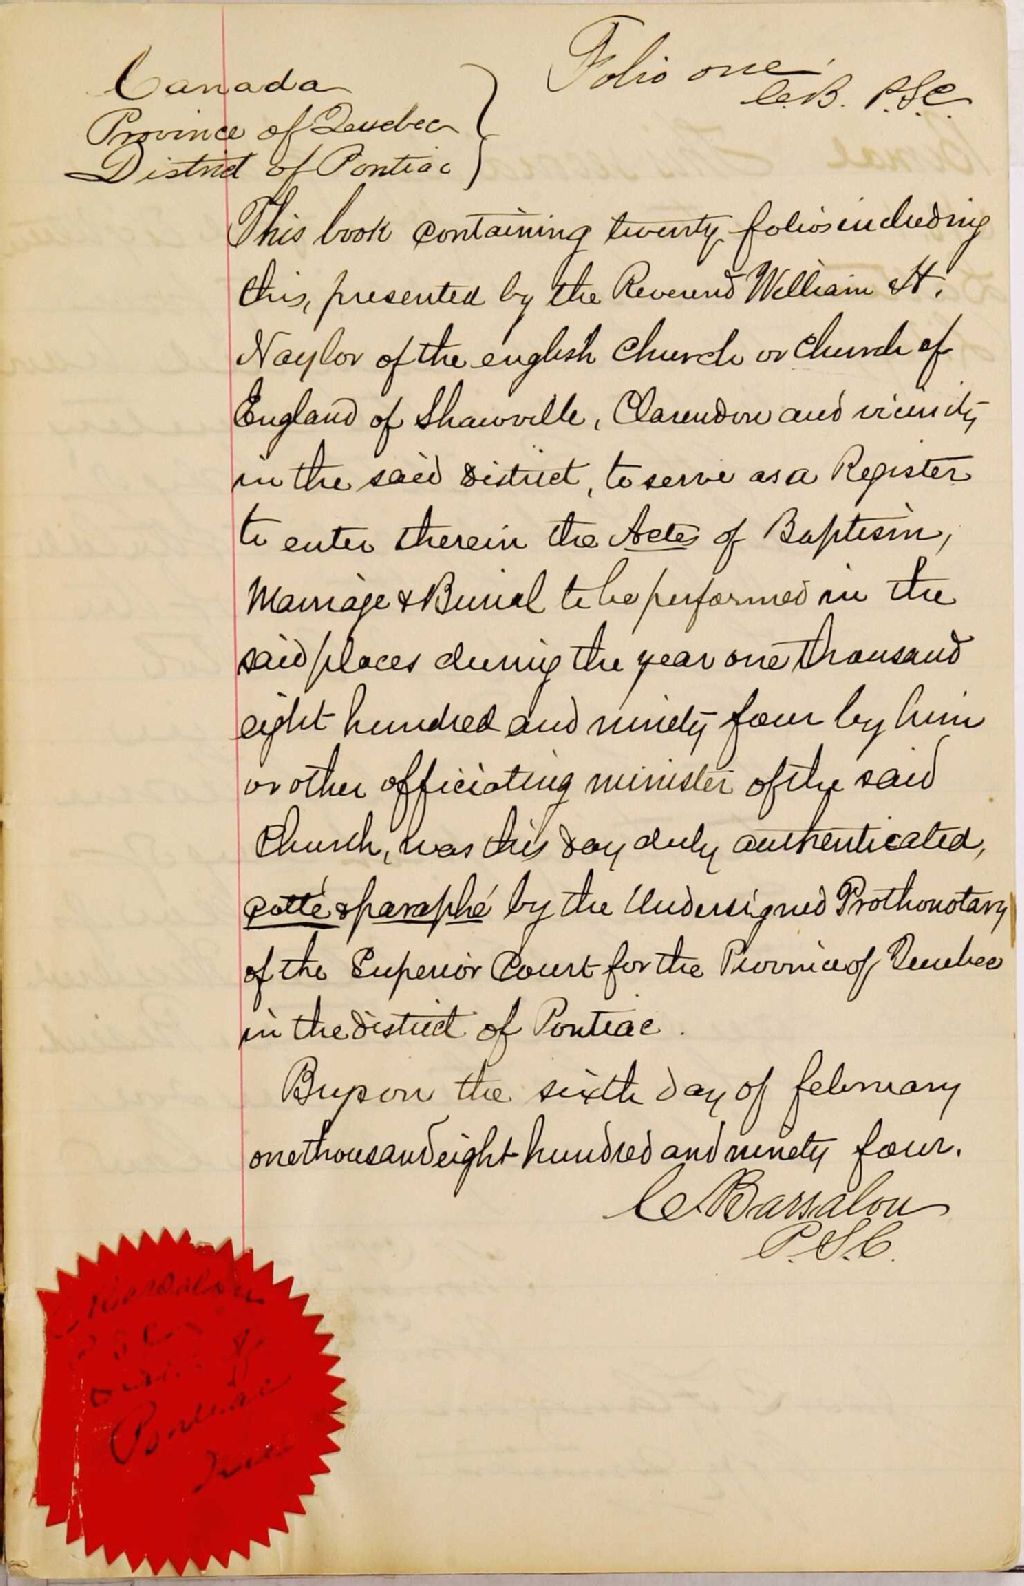 Folio one
C.B. P.S.C.
Canada
Province of Quebec
District of Pontiac
This book containing twenty folios including
this, presented by the Reverend William H.
Naylor of the english Church or Church of
England of Shawville, Clarendon and vicinity
in the said District, to serve as a Register
to enter therein the Actes of Baptism,
Marriage & Burial to be performed in the
said places during the year one thousand
eight hundred and ninety four by him
or other officiating minister of the said
Church, was this day duly authenticated,
cotté & paraphé by the Undersigned Prothonotary
of the Superior Court for the Province of Quebec
in the District of Pontiac.
Bryson the sixth day of february
one thousand eight hundred and ninety four.
C Barsalou
P.S.C.
Barsalou
P S C
Dist. of
Pontiac